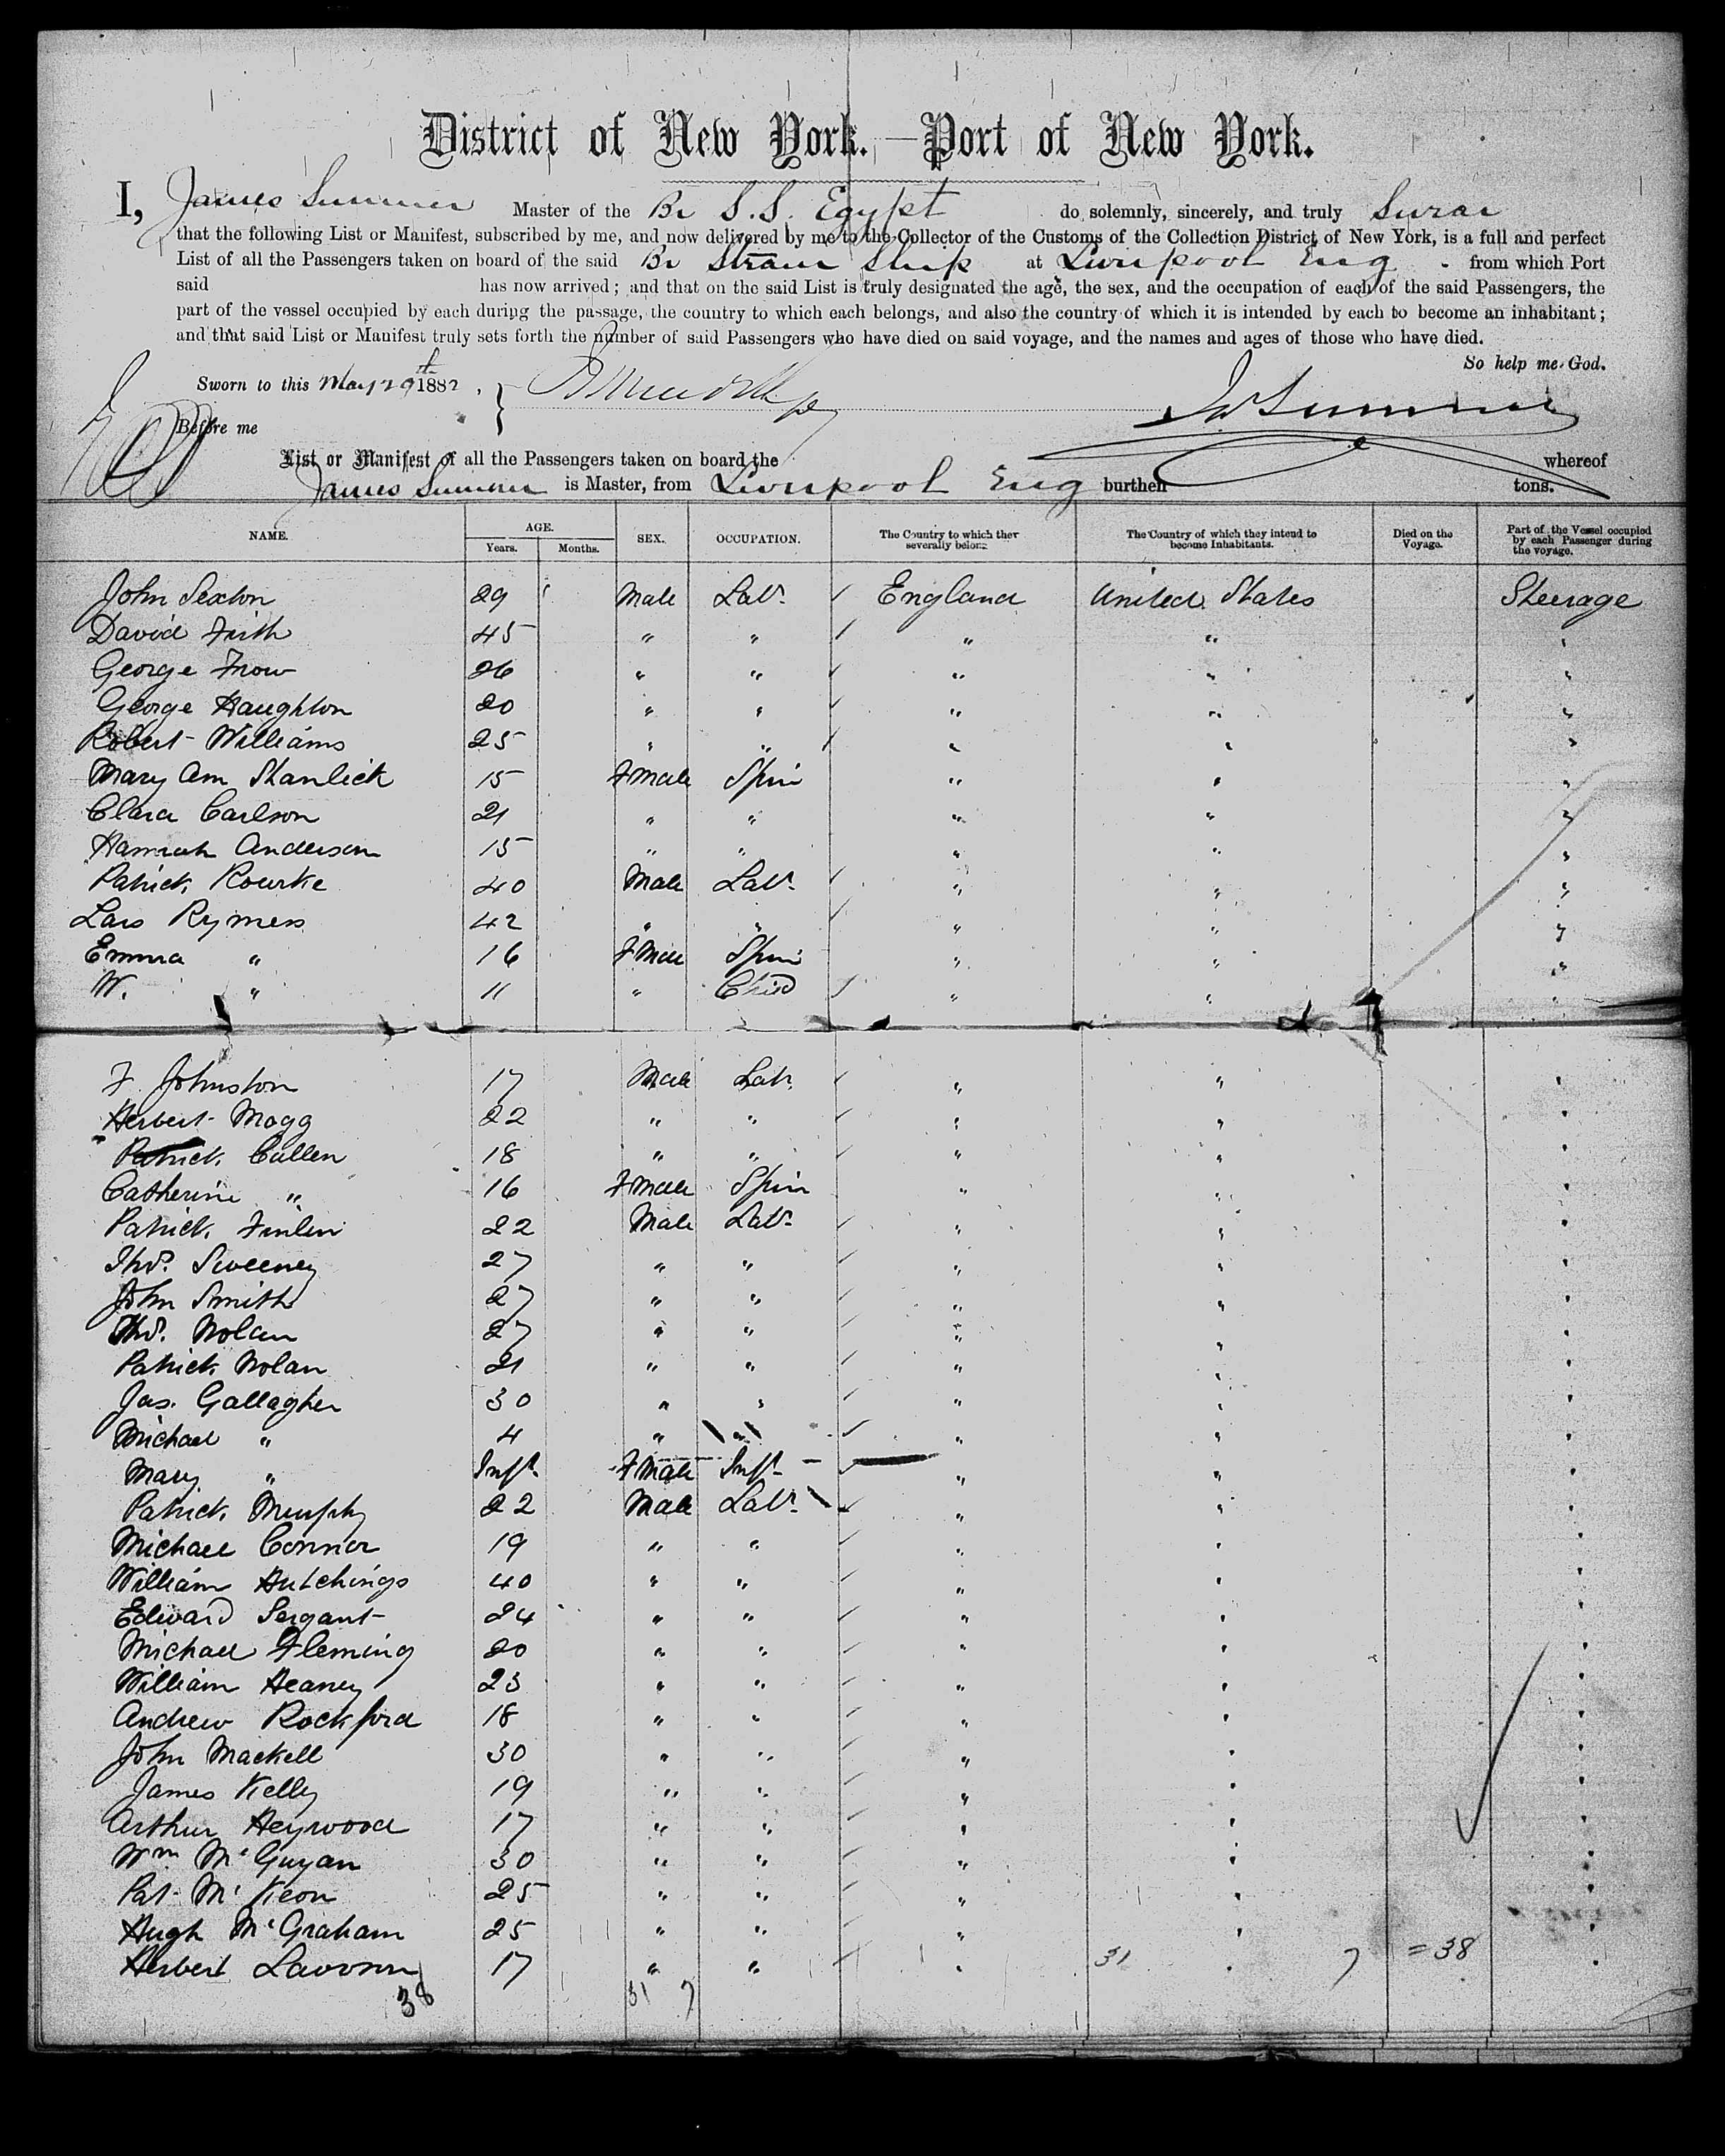 District of New York.—Port of New York.
I, James Summer Master of the Br S.S. Egypt do solemnly, sincerely, and truly Swear
that the following List or Manifest, subscribed by me, and now delivered by me to the Collector of the Customs of the Collection District of New York, is a full and perfect
List of all the Passengers taken on board of the said Br Steam Ship at Liverpool Eng. from which Port
said has now arrived; and that on the said List is truly designated the age, the sex, and the occupation of each of the said Passengers, the
part of the vessel occupied by each during the passage, the country to which each belongs, and also the country of which it is intended by each to become an inhabitant;
and that said List or Manifest truly sets forth the number of said Passengers who have died on said voyage, and the names and ages of those who have died.
So help me God.
Sworn to this May 29th 1882,
Before me
Jas Summer
List or Manifest of all the Passengers taken on board the whereof
James Summer is Master, from Liverpool Eng burthen tons.
NAME. AGE. SEX. OCCUPATION. The Country to which they severally belong. The Country of which they intend to become Inhabitants. Died on the Voyage. Part of the Vessel occupied by each Passenger during the voyage.
Years. Months.
John Sexton 29 Male Labr England United States Steerage
David Firth 45 " " " " "
George Frow 26 " " " " "
George Haughton 20 " " " " "
Robert Williams 25 " " " " "
Mary Ann Stanlick 15 Fmale Spin " " "
Clara Carlson 21 " " " " "
Hannah Anderson 15 " " " " "
Patrick Rourke 40 Male Labr " " "
Lars Rymers 42 " " " " "
Emma " 16 Fmale Spin " " "
W. " 11 " Child " " "
F. Johnston 17 Male Labr " " "
Herbert Mogg 22 " " " " "
Patrick Cullen 18 " " " " "
Catherine " 16 Fmale Spin " " "
Patrick Finlin 22 Male Labr " " "
Thos. Sweeney 27 " " " " "
John Smith 27 " " " " "
Thos. Nolan 27 " " " " "
Patrick Nolan 21 " " " " "
Jas. Gallagher 30 " " " " "
Michael " 4 " " " " "
Mary " Inft Fmale Inft " " "
Patrick Murphy 22 Male Labr " " "
Michael Connor 19 " " " " "
William Hutchings 40 " " " " "
Edward Sergant 24 " " " " "
Michael Fleming 20 " " " " "
William Heaney 23 " " " " "
Andrew Rockford 18 " " " " "
John Mackell 30 " " " " "
James Kelly 19 " " " " "
Arthur Heywood 17 " " " " "
Wm McGuyan 30 " " " " "
Pat McKeon 25 " " " " "
Hugh McGraham 25 " " " " "
Herbert Lawson 17 " " " 31 " 7 = 38 "
38 31 7